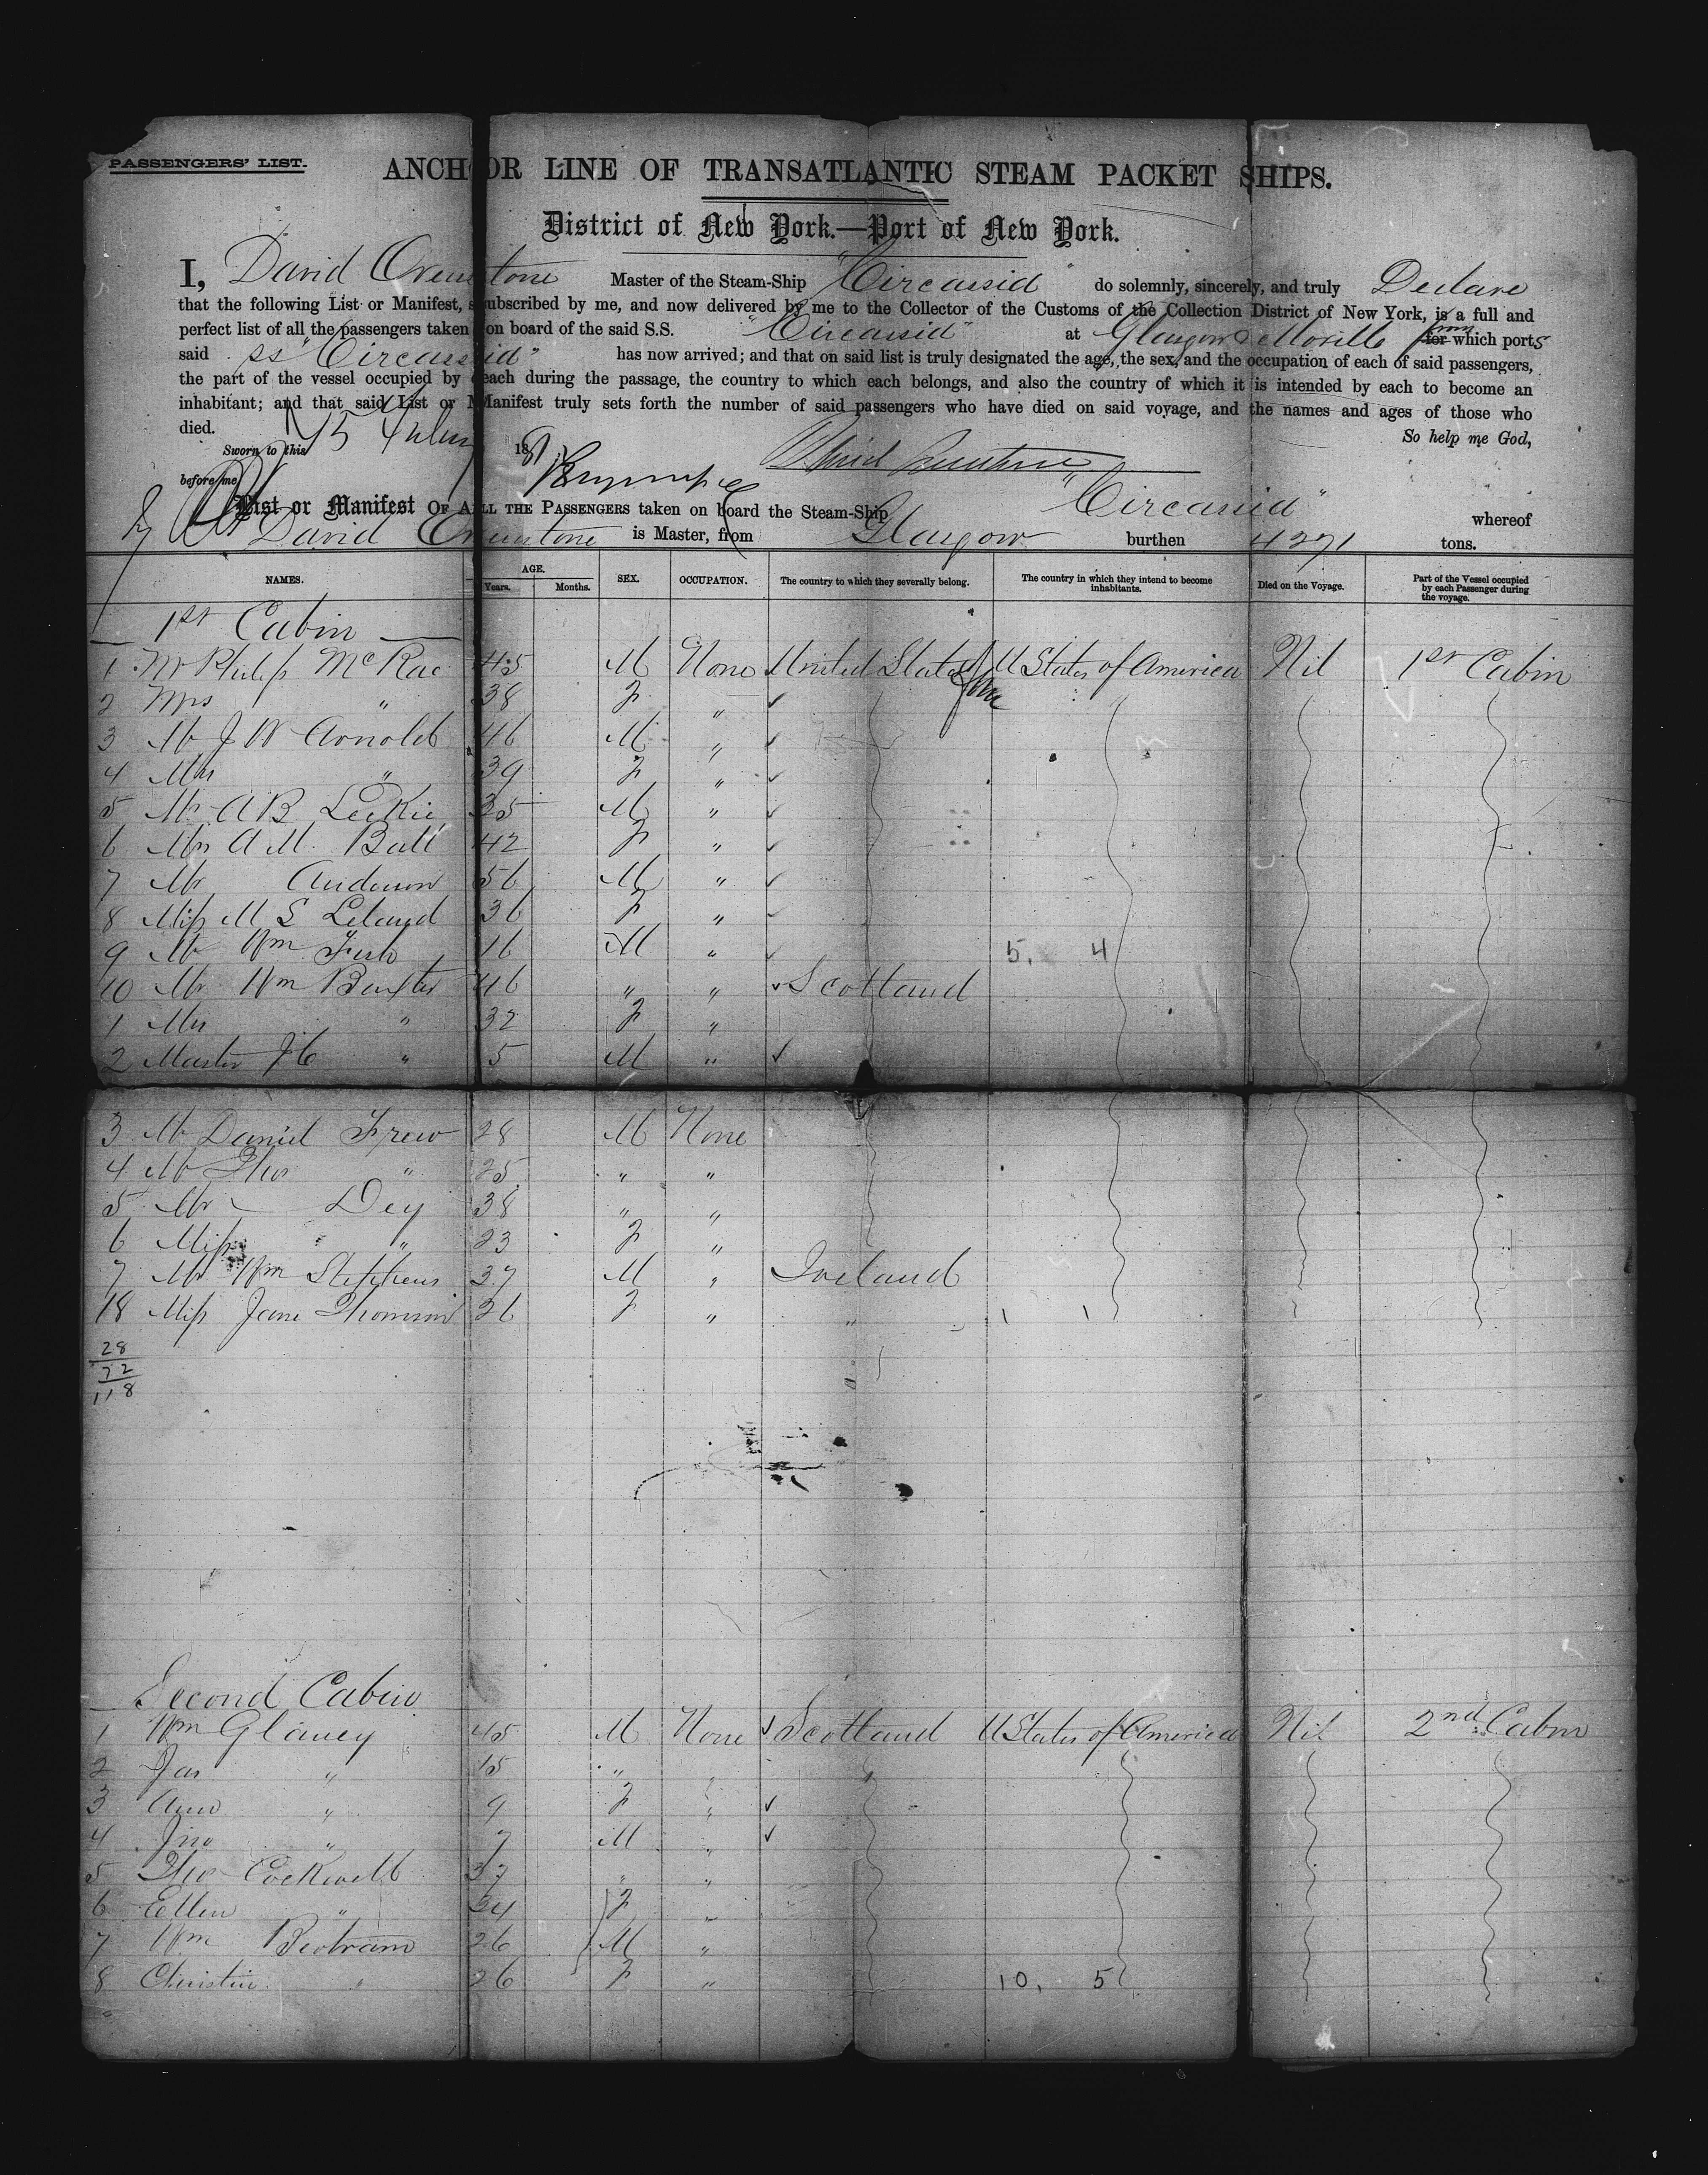 PASSENGERS' LIST.
ANCHOR LINE OF TRANSATLANTIC STEAM PACKET SHIPS.
District of New York.—Port of New York.
I, David Ovenstone Master of the Steam-Ship "Circassia" do solemnly, sincerely, and truly Declare
that the following List or Manifest, subscribed by me, and now delivered by me to the Collector of the Customs of the Collection District of New York, is a full and
perfect list of all the passengers taken on board of the said S.S. "Circassia" at Glasgow & Moville from which ports
said SS "Circassia" has now arrived; and that on said list is truly designated the age, the sex, and the occupation of each of said passengers,
the part of the vessel occupied by each during the passage, the country to which each belongs, and also the country of which it is intended by each to become an
inhabitant; and that said List or Manifest truly sets forth the number of said passengers who have died on said voyage, and the names and ages of those who
died. So help me God,
Sworn to this 15 1881
before me
List or Manifest OF ALL THE PASSENGERS taken on board the Steam-Ship "Circassia" whereof
David Ovenstone is Master, from Glasgow burthen 4271 tons.
NAMES. AGE. Years. Months. SEX. OCCUPATION. The country to which they severally belong. The country in which they intend to become inhabitants. Died on the Voyage. Part of the Vessel occupied by each Passenger during the voyage.
1st Cabin
1 Mr Philip McRae 45 M None United States U States of America Nil 1st Cabin
2 Mrs " 38 F "
3 Mr J W Arnold 46 M "
4 Mrs " 39 F "
5 Mr A B Leckie 35 M "
6 Mrs A M. Ball 42 F "
7 Mr Anderson 56 M "
8 Miss M S Leland 36 F "
9 Mr Wm Fish 16 M " 5, 4
10 Mr Wm Baxter 46 " " Scotland
1 Mrs " 32 F "
2 Master J C " 5 M "
3 Mr Daniel Frew 28 M None
4 Mr Thos " 25 " "
5 Mr Dey 38 " "
6 Miss " 23 F "
7 Mr Wm Stephens 37 M " Ireland
18 Miss Jane Thomson 26 F " " 1 1
28
72
118
Second Cabin
1 Wm Glancy 45 M None Scotland U States of America Nil 2nd Cabin
2 Jas " 15 " " "
3 Ann " 9 F "
4 Jno " 7 M "
5 Thos Cockwell 37 " "
6 Ellen " 34 F "
7 Wm Bertram 26 M "
8 Christin " 26 F " 10, 5